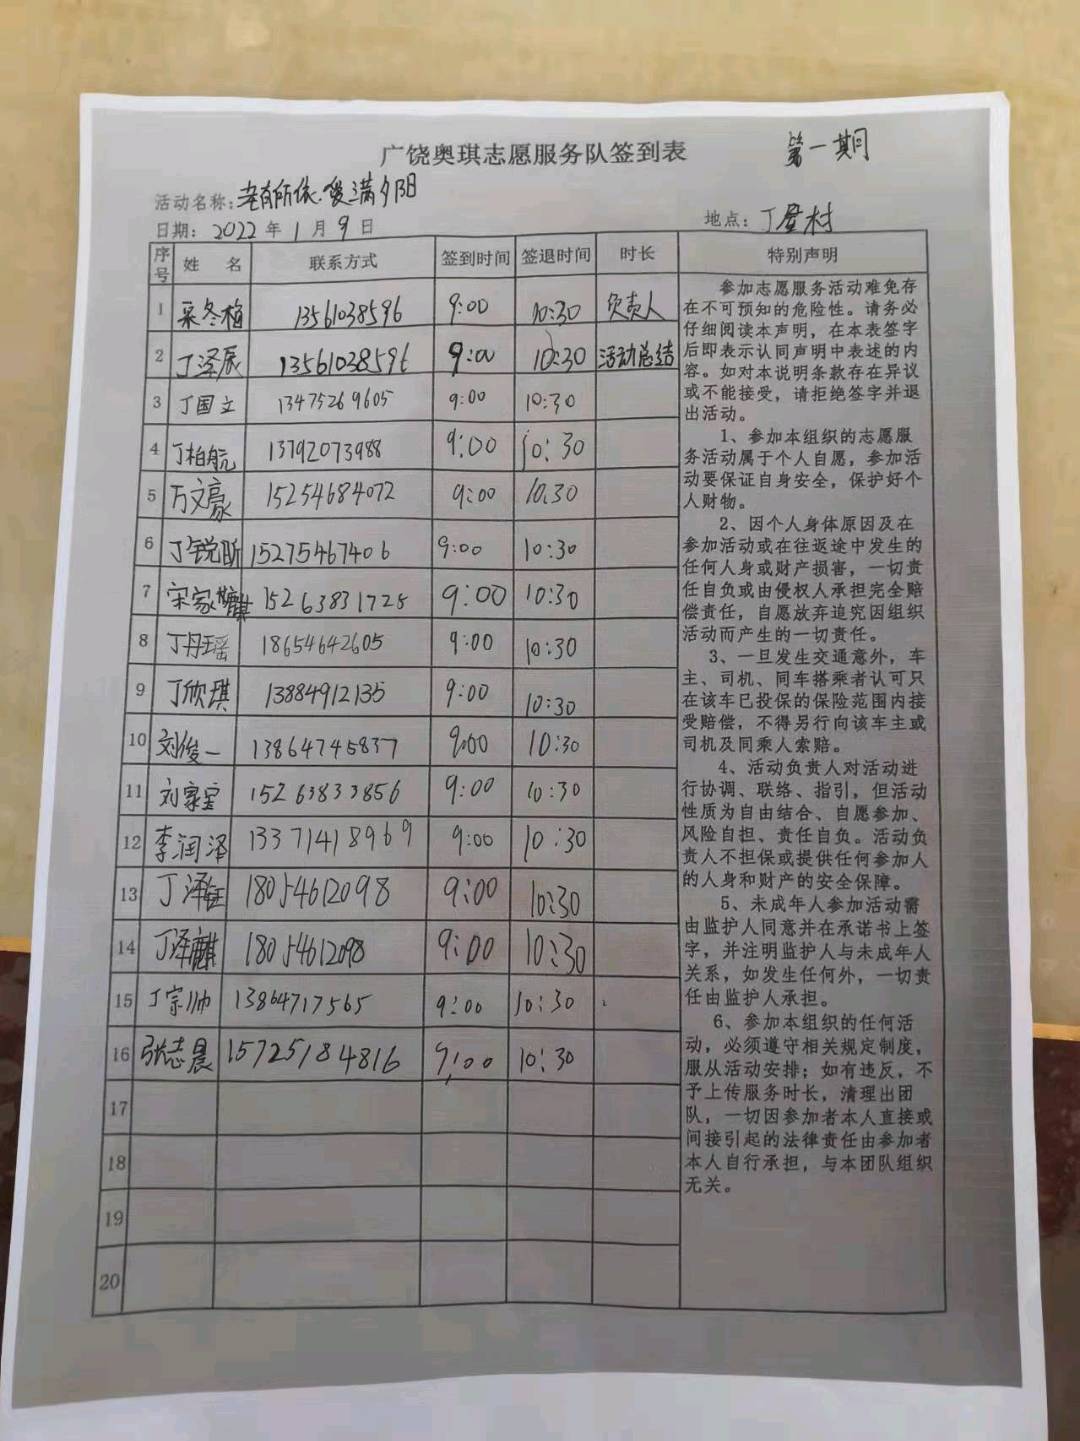 广饶奥琪志愿服务队签到表
第一期
活动名称:老有所依.暖满夕阳
日期: 2022 年 1 月 9 日
地点: 丁屋村
序号 姓 名 联系方式 签到时间 签退时间 时长 特别声明
1 冬梅 13561038596 9:00 10:30 负责人
2 丁泽辰 13561038596 9:00 10:30 活动总结
3 丁国立 13475269605 9:00 10:30
4 丁柏航 13792073988 9:00 10:30
5 万文豪 15254684072 9:00 10.30
6 丁锐昕 15275467406 9:00 10:30
7 宋家麒 15263831725 9:00 10:30
8 丁丹瑶 18654642605 9:00 10:30
9 丁欣琪 13884912135 9:00 10:30
10 刘俊一 13864745837 9:00 10:30
11 刘家宝 15263833856 9:00 10:30
12 李润泽 13371418969 9:00 10:30
13 丁泽钰 18054612098 9:00 10:30
14 丁泽麒 18054612098 9:00 10:30
15 丁宗帅 13864717565 9:00 10:30
16 张志晨 15725184816 9:00 10:30
17
18
19
20
参加志愿服务活动难免存
在不可预知的危险性。请务必
仔细阅读本声明，在本表签字
后即表示认同声明中表述的内
容。如对本说明条款存在异议
或不能接受，请拒绝签字并退
出活动。
1、参加本组织的志愿服
务活动属于个人自愿，参加活
动要保证自身安全，保护好个
人财物。
2、因个人身体原因及在
参加活动或在往返途中发生的
任何人身或财产损害，一切责
任自负或由侵权人承担完全赔
偿责任，自愿放弃追究因组织
活动而产生的一切责任。
3、一旦发生交通意外，车
主、司机、同车搭乘者认可只
在该车已投保的保险范围内接
受赔偿，不得另行向该车主或
司机及同乘人索赔。
4、活动负责人对活动进
行协调、联络、指引，但活动
性质为自由结合、自愿参加、
风险自担、责任自负。活动负
责人不担保或提供任何参加人
的人身和财产的安全保障。
5、未成年人参加活动需
由监护人同意并在承诺书上签
字，并注明监护人与未成年人
关系，如发生任何外，一切责
任由监护人承担。
6、参加本组织的任何活
动，必须遵守相关规定制度，
服从活动安排；如有违反，不
予上传服务时长，清理出团
队，一切因参加者本人直接或
间接引起的法律责任由参加者
本人自行承担，与本团队组织
无关。